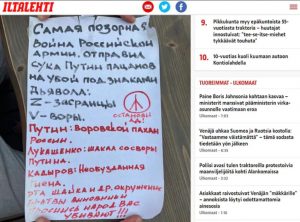 ILTALEHTI
Самая позорная
война Российской
армии. отправил
сука Путин пацанов
на убой под знаками
Дьявола:
Z - засранцы
V - воры.
останови
Путин: Воровской пахан
России.
Лукашенко: шакал со своры
Путина.
Кадыров: Необузданная
гиена.
эта шайка и др. окружение
виновники
народ Вас
убивают!!!
9. Pikkukunta myy epäkuntoista 55-
vuotiasta traktoria – huutajat
innostuivat: "tee-se-itse-miehet
tykkäävät touhuta"
10. 10-vuotias kuoli kuumaan autoon
Kontiolahdella
TUOREIMMAT - ULKOMAAT
Paine Boris Johnsonia kohtaan kasvaa
– ministerit marssivat pääministerin virka-
asunnolle vaatimaan eroa
Ulkomaat
Venäjä uhkaa Suomea ja Ruotsia kostolla:
"Vastaamme väistämättä" – tämä sodasta
tiedetään yön jälkeen
Ulkomaat
Poliisi avasi tulen traktoreilla protestoivia
maanviljelijöitä kohti Alankomaissa
Ulkomaat
Asiakkaat raivostuivat Venäjän "mäkkärille"
– annoksista löytyi odottamattomia
ainesosia
Ulkomaat